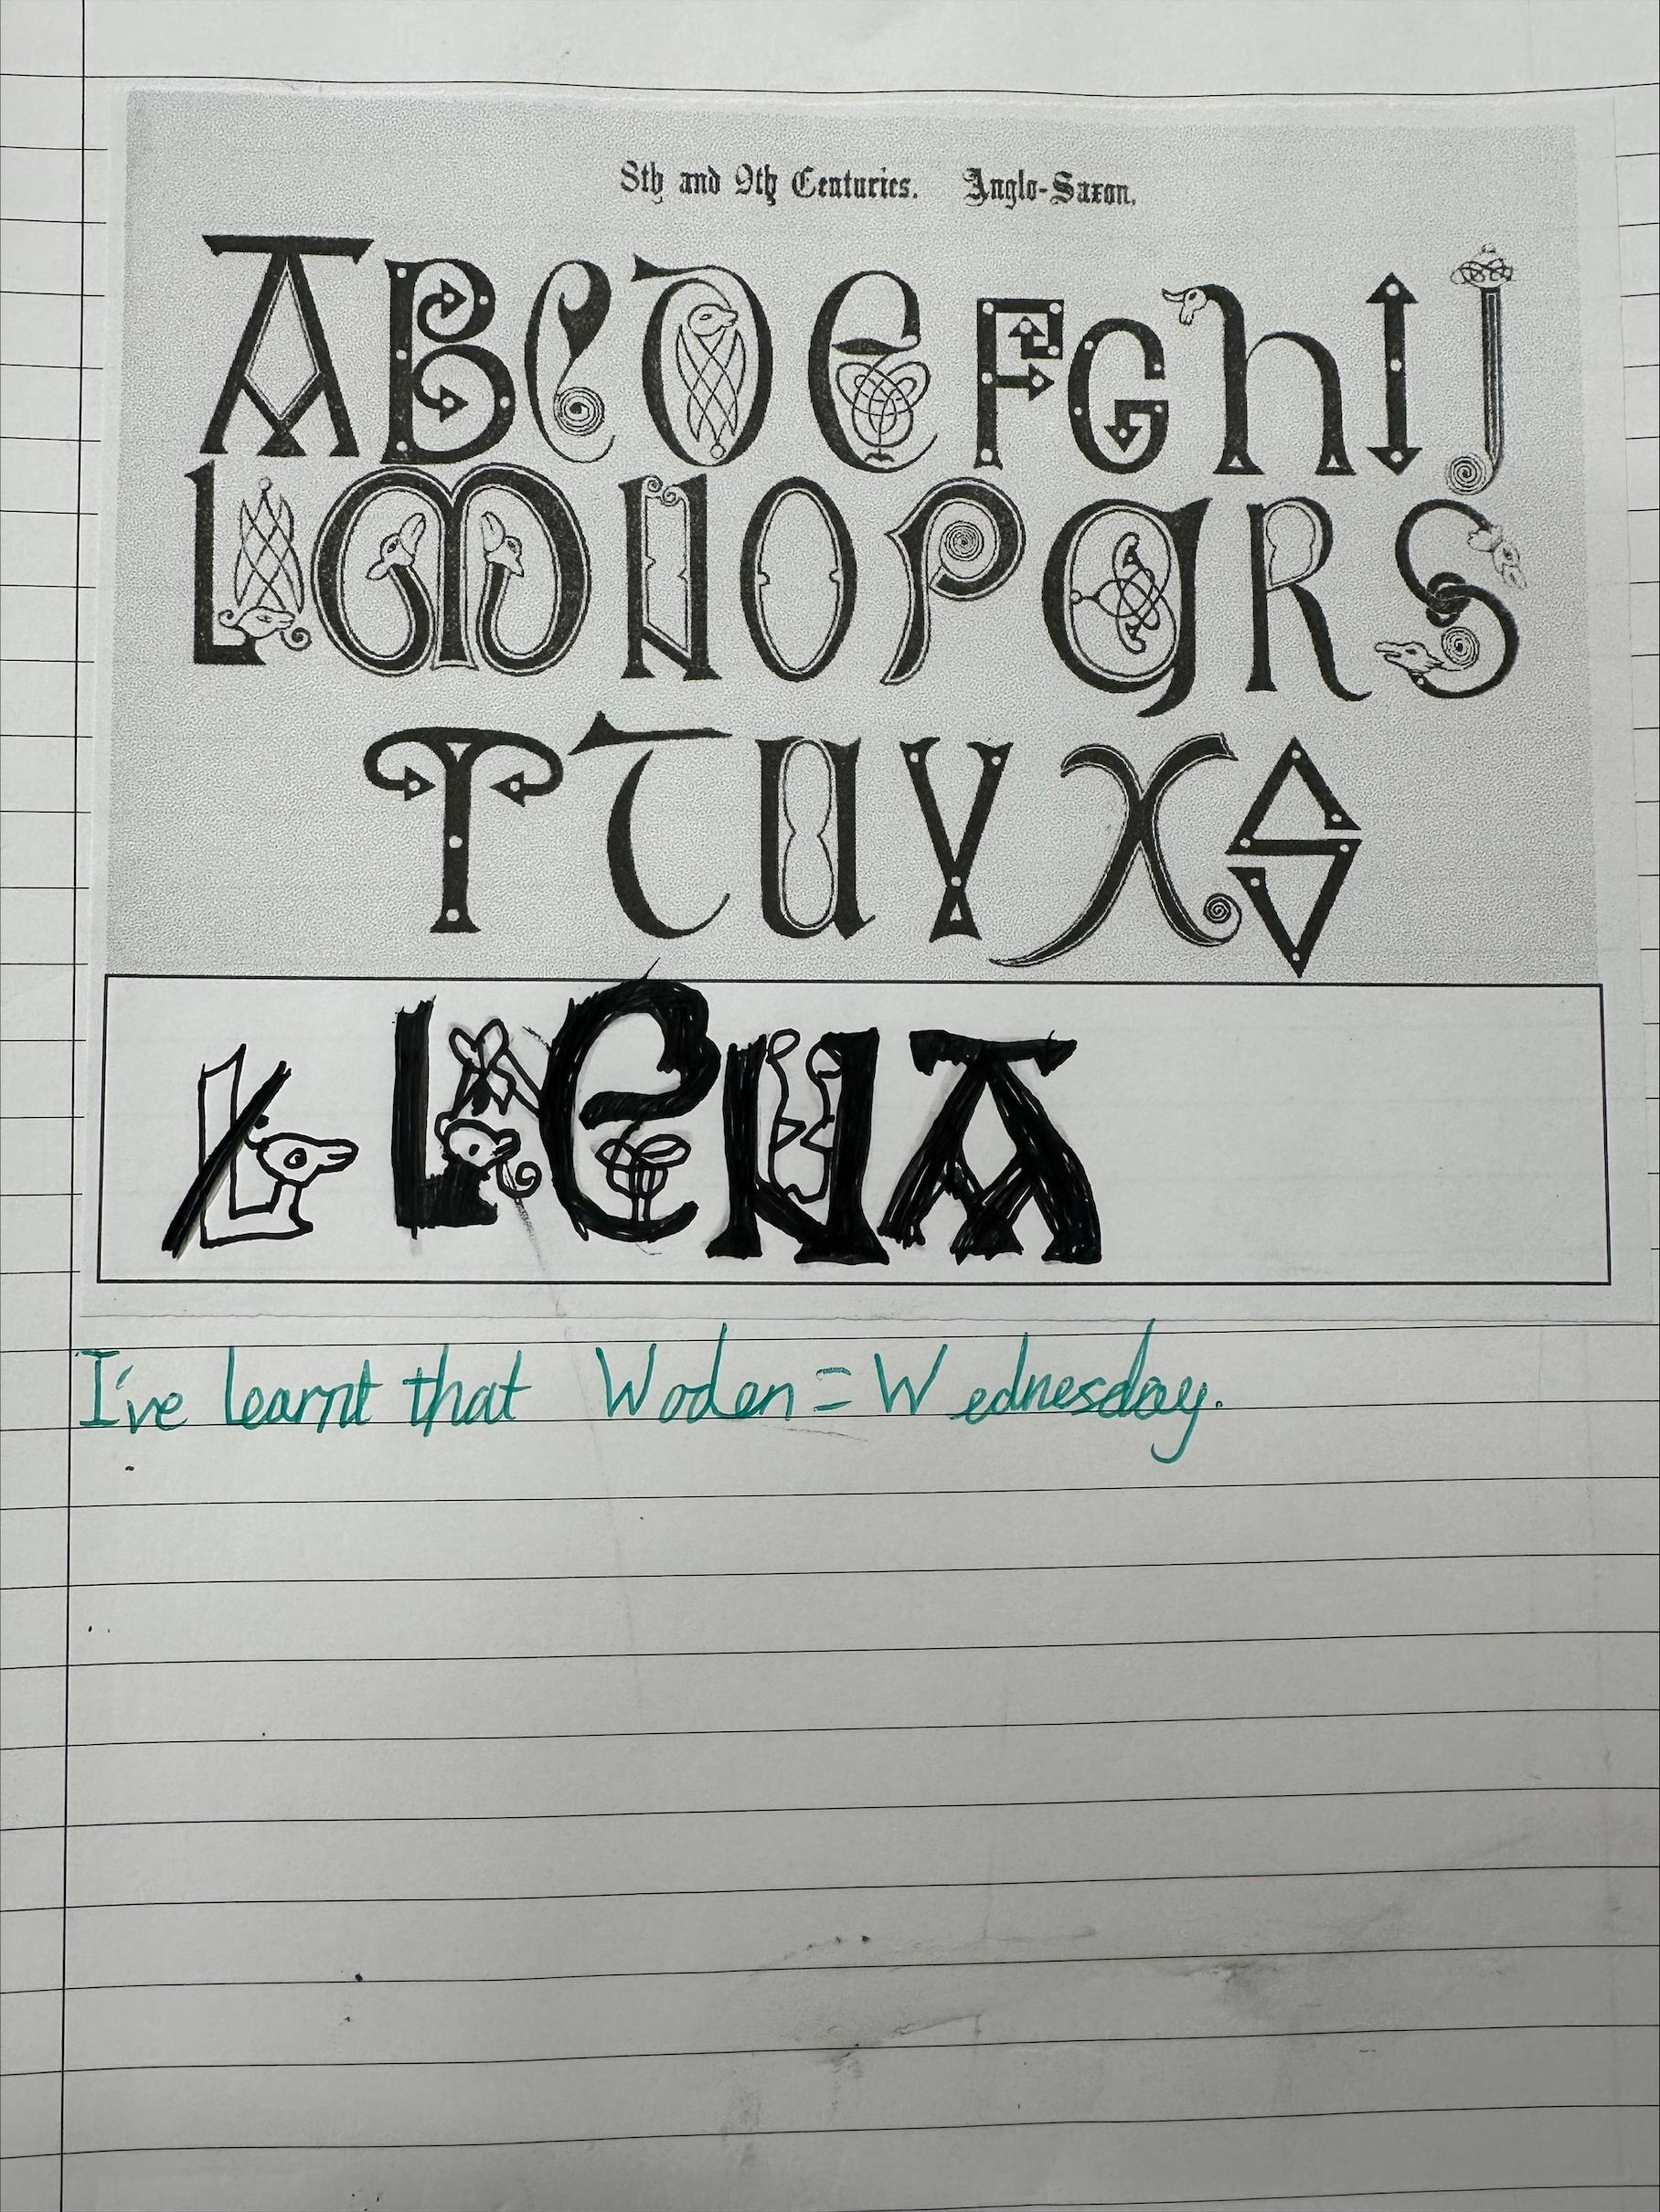 8th and 9th Centuries. Anglo-Saxon.
A B C D E F G h I J
L M N O P Q R S
T T U V X S
L LENA
I've learnt that Woden = Wednesday.